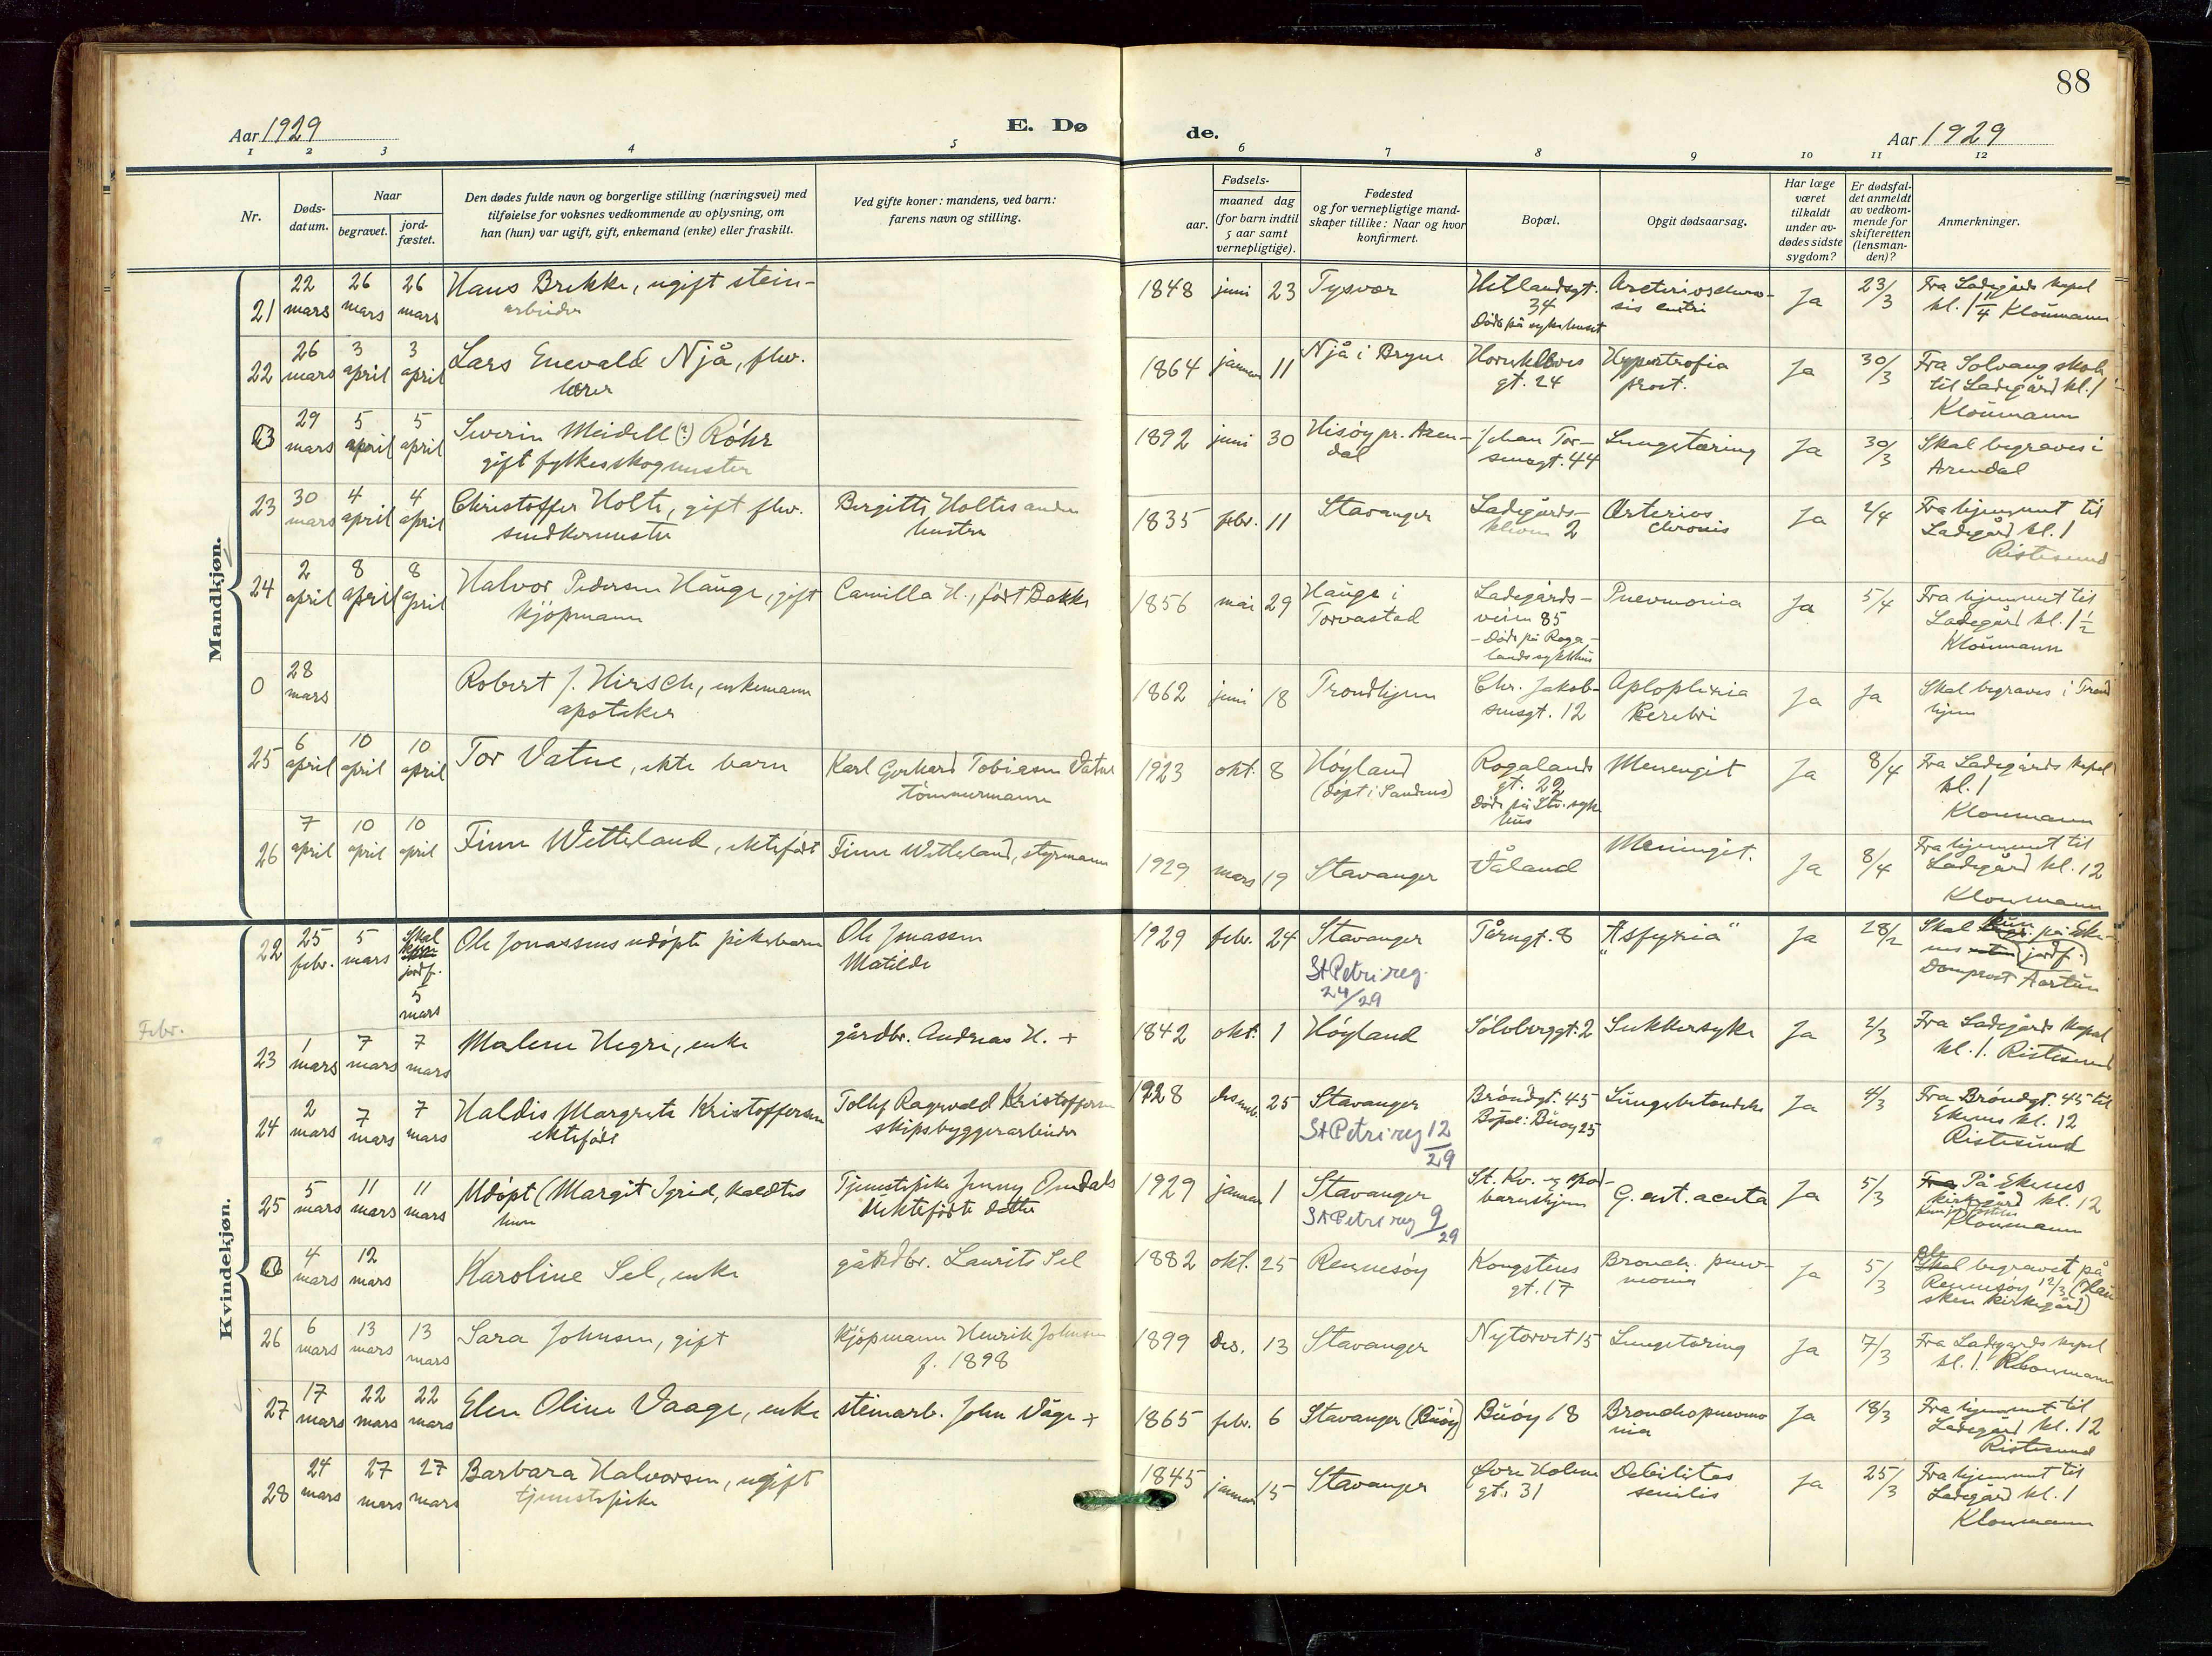 88
Aar 1929
E. Dø
de.
Aar 1929
1 2 3 4 5 6 7 8 9 10 11 12
Nr.
Døds-
datum.
Naar
begravet.
jord-
fæstet.
Den dødes fulde navn og borgerlige stilling (næringsvei) med
tilføielse for voksnes vedkommende av oplysning, om
han (hun) var ugift, gift, enkemand (enke) eller fraskilt.
Ved gifte koner: mandens, ved barn:
farens navn og stilling.
Fødsels-
aar.
maaned dag
(for barn indtil
5 aar samt
vernepligtige).
Fødested
og for vernepligtige mand-
skaper tillike: Naar og hvor
konfirmert.
Bopæl.
Opgit dødsaarsag.
Har læge
været
tilkaldt
under av-
dødes sidste
sygdom?
Er dødsfal-
det anmeldt
av vedkom-
mende for
skifteretten
(lensman-
den)?
Anmerkninger.
Mandkjøn.
21 22 mars 26 mars 26 mars Hans Brekke, ugift stein-
arbeider
1848 juni 23 Tysvær Hetlandsgt.
34
Døde på sykehuset
Arteriosclero-
sis
Ja 23/3 Fra Ladegårds kapel
kl. 1 1/4 Kloumann
22 26 mars 3 april 3 april Lars Enevald Njå, fhv.
lærer
1864 januar 11 Njå i Bryne Hornkløves
gt. 24
Hypertrofia
prost.
Ja 30/3 Fra Solvang skole
til Ladegård kl. 1
Kloumann
29 mars 5 april 5 april Severin Meidell (?) Röhr
gift fylkesskogmester
1892 juni 30 Hisöy pr. Aren-
dal
Johan Tor-
sensgt. 44
Lungetæring Ja 30/3 Skal begraves i
Arendal
23 30 mars 4 april 4 april Christoffer Holte, gift fhv.
Birgitte Holtes anden
hustru
1835 febr. 11 Stavanger Ladegårds-
kleven 2
Arterios
chronis
Ja 2/4 Fra hjemmet til
Ladegård kl. 1
Ristesund
24 2 april 8 april 8 april Halvor Pedersen Hauge, gift
kjöpmann
Camilla H., född Bakke
1856 mai 29 Hauge i
Torvastad
Ladegårds-
veien 85
- Døde på Roga-
lands sykehus
Pneumonia Ja 5/4 Fra hjemmet til
Ladegård kl. 1 1/2
Kloumann
0 28 mars Robert J. Hirsch, enkemann
apoteker
1862 juni 18 Trondhjem Chr. Jakob-
sensgt. 12
Aploplexia
Cerebri
Ja Ja Skal begraves i Trond
hjem
25 6 april 10 april 10 april Tor Vatne, ekte barn
Karl Gerhard Tobiasen Vatne
tömmermann
1923 okt. 8 Höyland
(döpt i Sandnes)
Rogalands
gt. 22
Døde på Stv. syke
hus
Menengit Ja 8/4 Fra Ladegårds kapel
kl. 1
Kloumann
26 7 april 10 april 10 april Finn Wetteland, ektefödt
Finn Wetteland, styrmann
1929 mars 19 Stavanger Våland Meningit. Ja 8/4 Fra hjemmet til
Ladegård kl. 12
Kloumann
Kvindekjøn.
22 25 febr. 5 mars Skal
jordf.
5
mars
Ole Jonassens udöpte pikebarn
Ole Jonassen
Matilde
1929 febr. 24 Stavanger
St Petri reg.
24/29
Tårngt. 8 "Asfyxia" Ja 28/2 Skal kun på Eke-
nes (jordf.)
Domprost Aartun
Febr.
23 1 mars 7 mars 7 mars Malene Hegre, enke
gårdbr. Andreas H. +
1842 okt. 1 Höyland Sölvberggt. 2 Sukkersyke Ja 2/3 Fra Ladegårds kapel
kl. 1. Ristesund
24 2 mars 7 mars 7 mars Haldis Margrete Kristoffersen
ektefödt
Tollef Ragnvald Kristoffersen
skipsbyggerarbeider
1928 desemb. 25 Stavanger
St Petri reg 12/29
Bröndgt. 45
Bopæl: Buöy 25
Lungebetendelse Ja 4/3 Fra Bröndgt. 45 til
Ekenes kl. 12
Ristesund
25 5 mars 11 mars 11 mars Udöpt (Margit Igrid, kaldtes
hun
Tjenestepike Jenny Omdals
Uektefödte datter
1929 januar 1 Stavanger
St Petri reg 9/29
St. Kv. og
barnehjem
G. ent. acuta Ja 5/3 Fra På Ekenes
kirkegård kl. 12
Kloumann
4 mars 12 mars Karoline Sel, enke
gårdbr. Laurits Sel
1882 okt. 25 Rennesöy Kongstens
gt. 17
Bronch. pneu-
monia
Ja 5/3 Skal begravet på
Rennesöy 12/3 (Hau
sken kirkegård)
26 6 mars 13 mars 13 mars Sara Johnsen, gift
Kjöpmann Henrik Johnsen
f. 1898
1899 des. 13 Stavanger Nytorvet 15 Lungetæring Ja 7/3 Fra Ladegårds kapel
kl. 1. Kloumann
27 17 mars 22 mars 22 mars Elen Oline Vaage, enke
steinarb. John Våge +
1865 febr. 6 Stavanger (Buöy) Buöy 18 Bronchopneumo
nia
Ja 18/3 Fra hjemmet til
Ladegård kl. 12
Ristesund
28 24 mars 27 mars 27 mars Barbara Halvorsen, ugift
tjenestepike
1845 januar 15 Stavanger Øvre Holme
gt. 31
Debilitas
senilis
Ja 25/3 Fra hjemmet til
Ladegård kl. 1
Kloumann